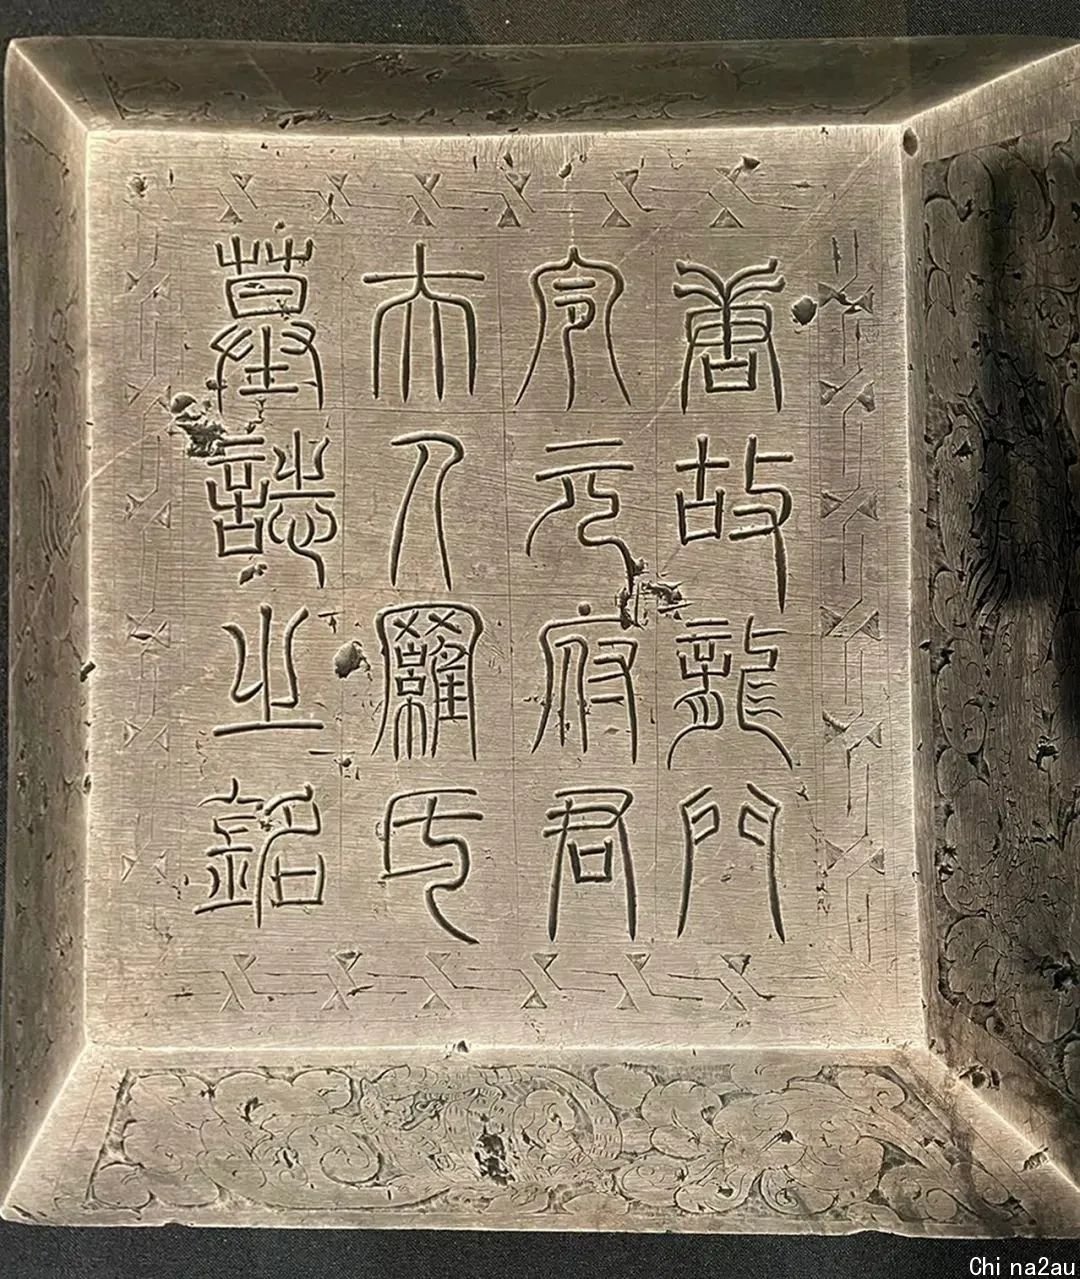 唐故龍門
令元府君
夫人羅氏
墓誌之銘
Chi na2au